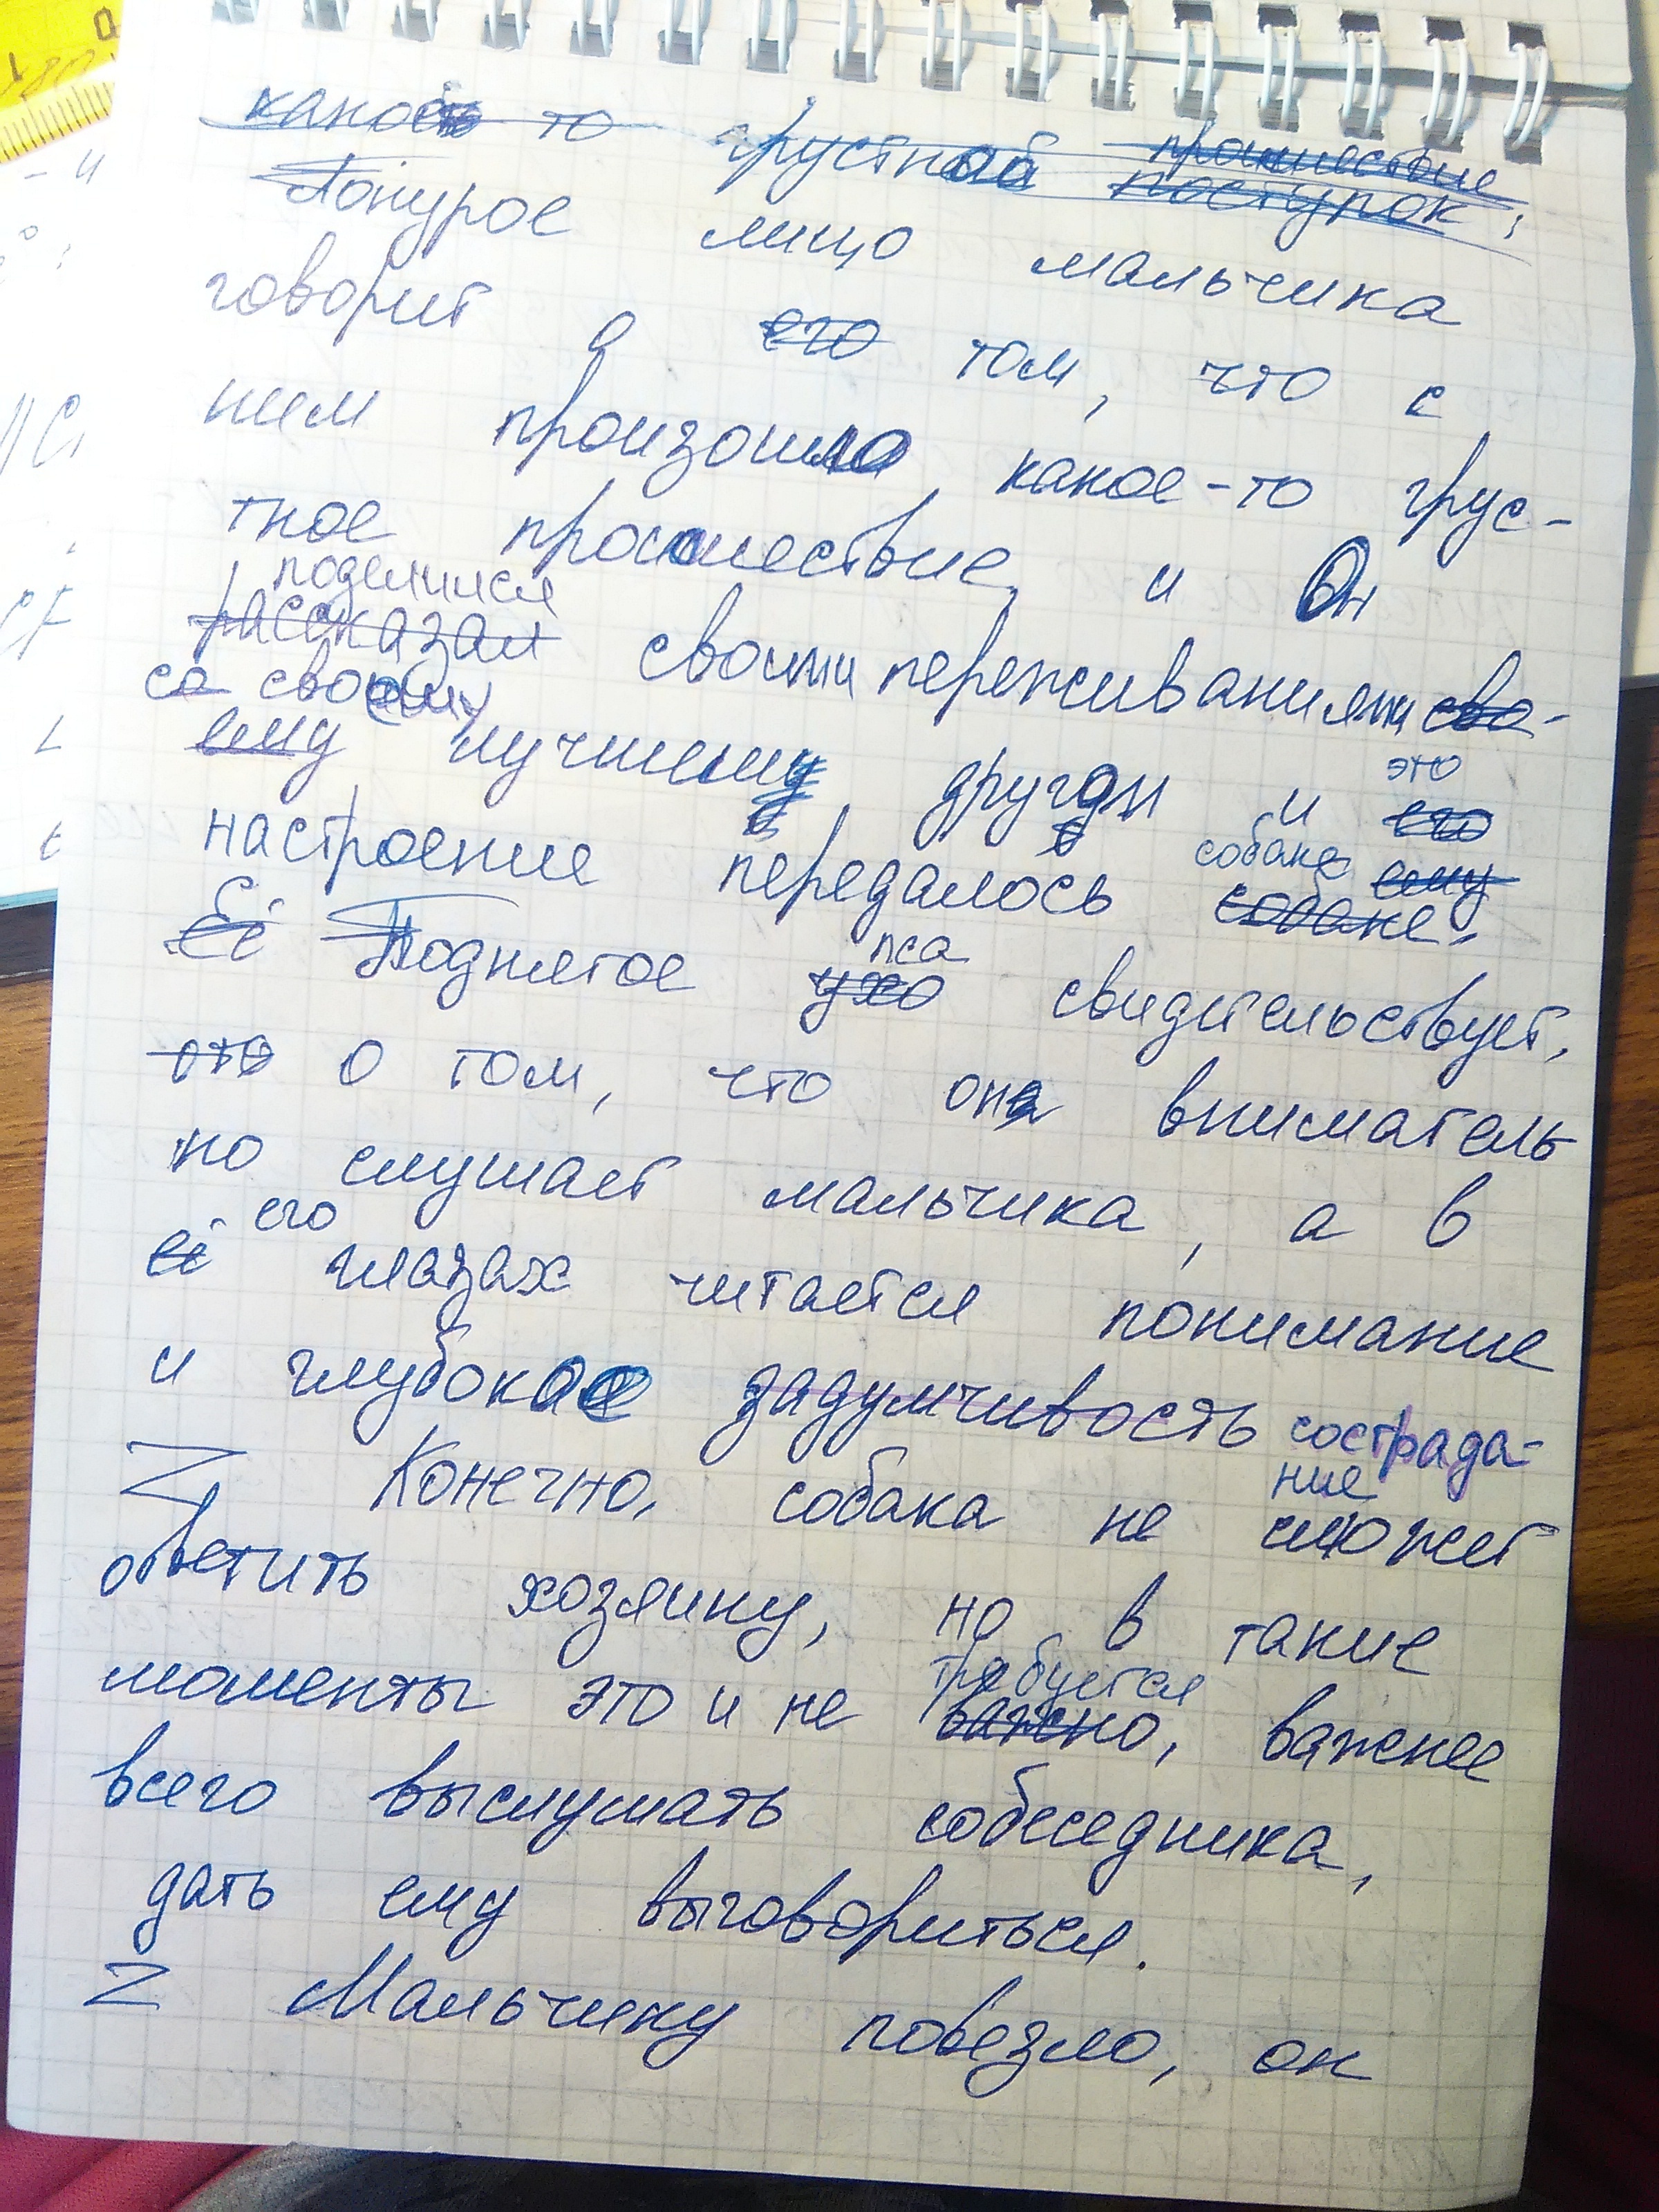 какое то грустной происшествие
поступок,
Понурое лицо мальчика
говорит о его том, что с
ним произошло какое-то грус-
тное проишествие, и Он
поделился
рассказал своими переживаниями сво-
со своему
ему лучшему другом и это
его
настроение передалось собаке ему
собаке.
Её Поднятое пса
ухо свидетельствует,
это о том, что она вниматель
но слушает мальчика, а в
её его глазах читается понимание
и глубокое задумчивость сострада-
ние
Z Конечно, собака не сможет
ответить хозяину, но в такие
требуется
моменты это и не важно, важнее
всего выслушать собеседника,
дать ему выговориться.
Z Мальчику повезло, он